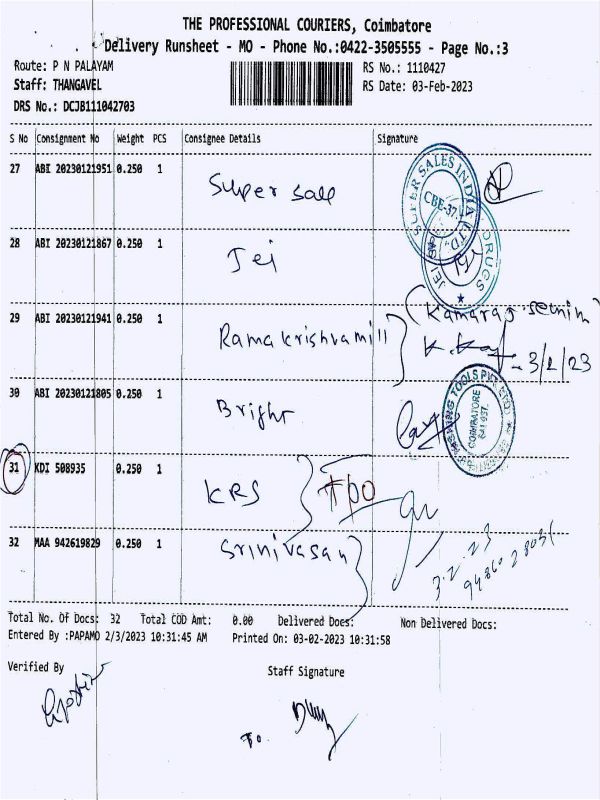 THE PROFESSIONAL COURIERS, Coimbatore
Delivery Runsheet - MO - Phone No.:0422-3505555 - Page No.:3
Route: P N PALAYAM
RS No.: 1110427
Staff: THANGAVEL
RS Date: 03-Feb-2023
DRS No.: DCJB111042703
S No Consignment No Weight PCS Consignee Details Signature
27 ABI 20230121951 0.250 1 Super sale
SUPER SALES INDIA LTD.
CBE-37.
28 ABI 20230121867 0.250 1 Jei
JEI DRUGS
29 ABI 20230121941 0.250 1 Ramakrishnamill
Kamaraj
3/2/23
30 ABI 20230121805 0.250 1 Bright
TOOLS PVT LTD
COIMBATORE
641 037.
31 KDI 508935 0.250 1 KRS
32 MAA 942619829 0.250 1 Srinivasan
3.2.23
Total No. Of Docs: 32 Total COD Amt: 0.00 Delivered Docs: Non Delivered Docs:
Entered By :PAPAMO 2/3/2023 10:31:45 AM Printed On: 03-02-2023 10:31:58
Verified By
Staff Signature